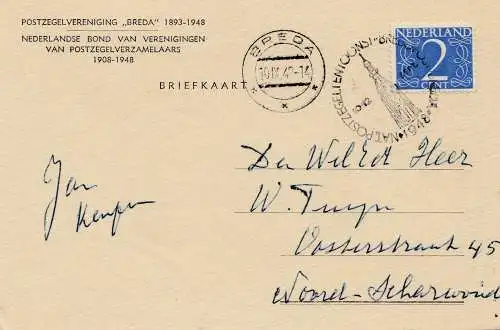 POSTZEGELVERENIGING „BREDA” 1893-1948
NEDERLANDSE BOND VAN VERENIGINGEN
VAN POSTZEGELVERZAMELAARS
1908-1948
BRIEFKAART
BREDA
NEDERLAND
2
CENT
NAT. POSTZEGELTENTOONST. BREDA
1948
Jan
Den WelEd Heer
W. Tuyn
Oosterstraat 45
Noord-Scharwoude